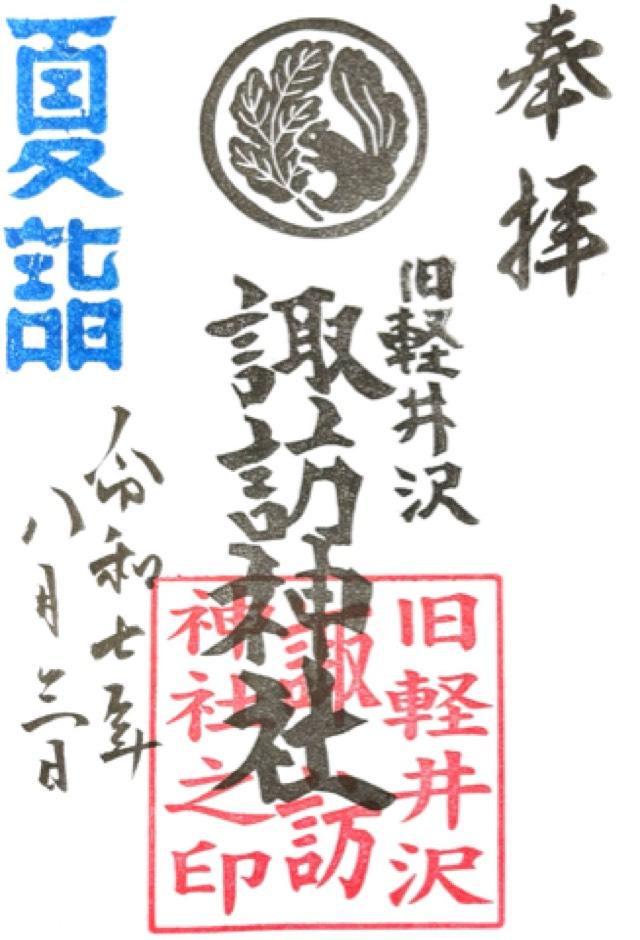 奉拝
旧軽井沢
諏訪神社
旧軽井沢
諏訪
神社之印
夏詣
令和七年
八月二日